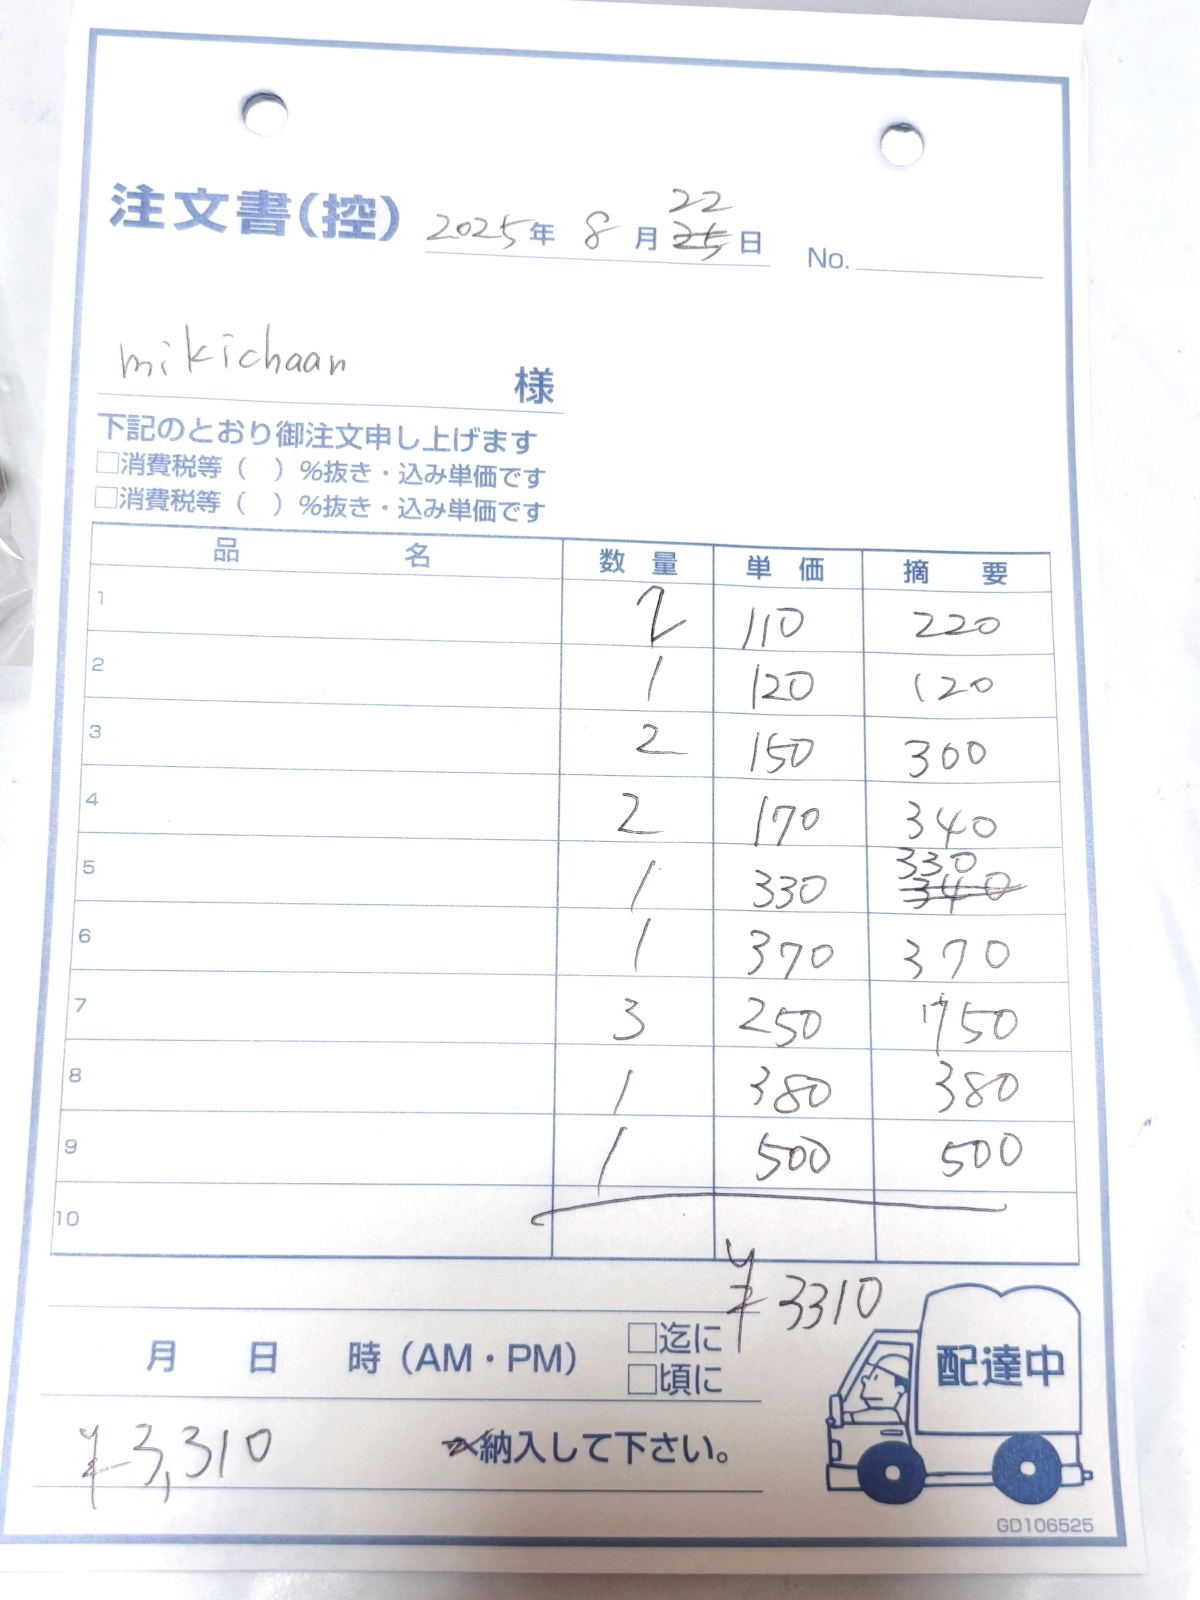 注文書(控) 2025年 8月 22 25日 No.
mikichaan 様
下記のとおり御注文申し上げます
□消費税等( )%抜き・込み単価です
□消費税等( )%抜き・込み単価です
品 名 数 量 単 価 摘 要
1 2 110 220
2 1 120 120
3 2 150 300
4 2 170 340
5 1 330 330 340
6 1 370 370
7 3 250 750
8 1 380 380
9 1 500 500
10
¥3310
月 日 時(AM・PM) □迄に
□頃に
配達中
¥3,310 納入して下さい。
GD106525